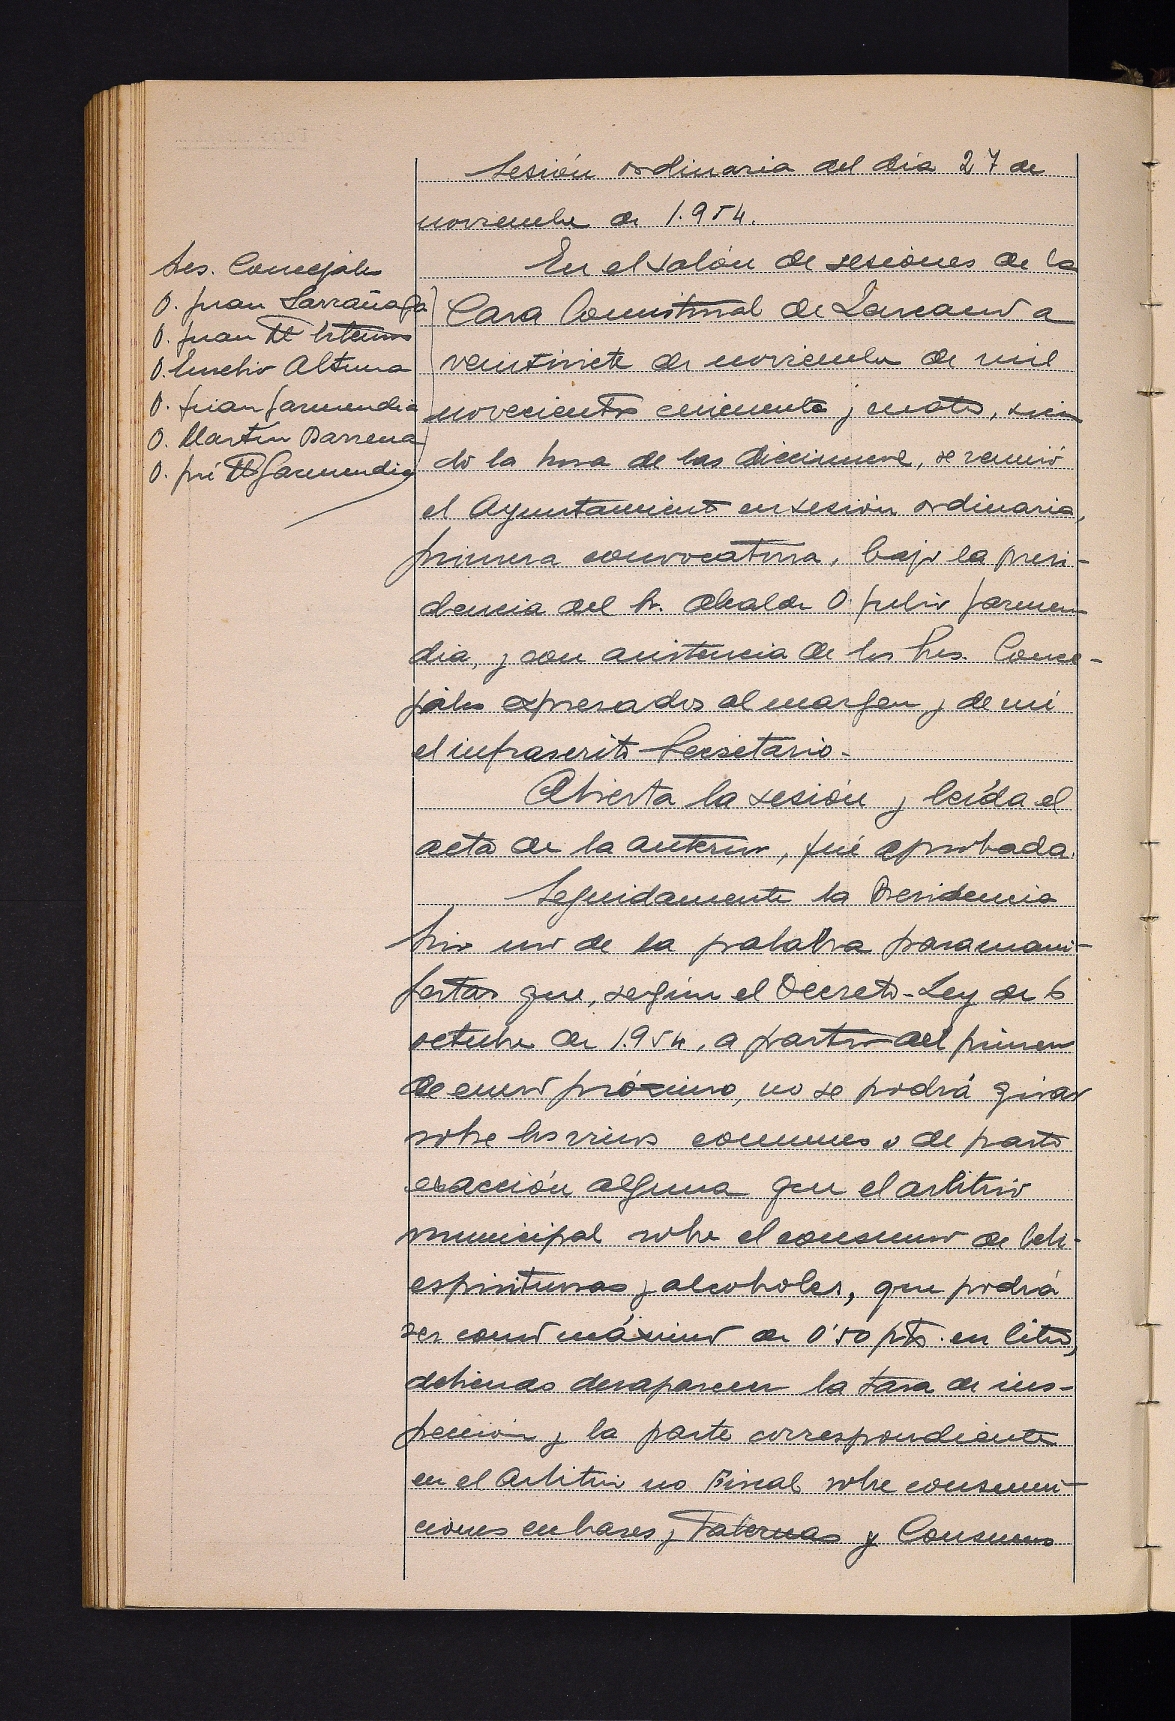 Sesión ordinaria del día 27 de
noviembre de 1.954.
Sres. Concejales
D. Juan Larrañaga
D. Juan Mª
D. Eusebio Altuna
D. Juan Garmendia
D. Martín Barrena
D. José Mª Garmendia
En el salón de sesiones de la
Casa Consistorial de Lazcano a
veintisiete de noviembre de mil
novecientos cincuenta y cuatro, sien
do la hora de las diecinueve, se reunió
el Ayuntamiento en sesión ordinaria,
primera convocatoria, bajo la presi-
dencia del Sr. Alcalde D. Julio Garmen
dia, y con asistencia de los Sres. Conce-
jales expresados al margen y de mí
el infrascrito Secretario.-
Abierta la sesión y leída el
acta de la anterior, fué aprobada.
Seguidamente la Presidencia
hizo uso de la palabra para mani-
festar que, según el Decreto-Ley de 6
octubre de 1.954, a partir del primero
de enero próximo, no se podrá girar
sobre los vinos comunes o de pasto
exacción alguna que el arbitrio
municipal sobre el consumo de beb.
espirituosas y alcoholes, que podrá
ser como máximo de 0'50 pts. en litro,
debiendo desaparecer la tasa de ins-
pección y la parte correspondiente
en el Arbitrio no Fiscal sobre consumi-
ciones en bares, Tabernas y Consumo